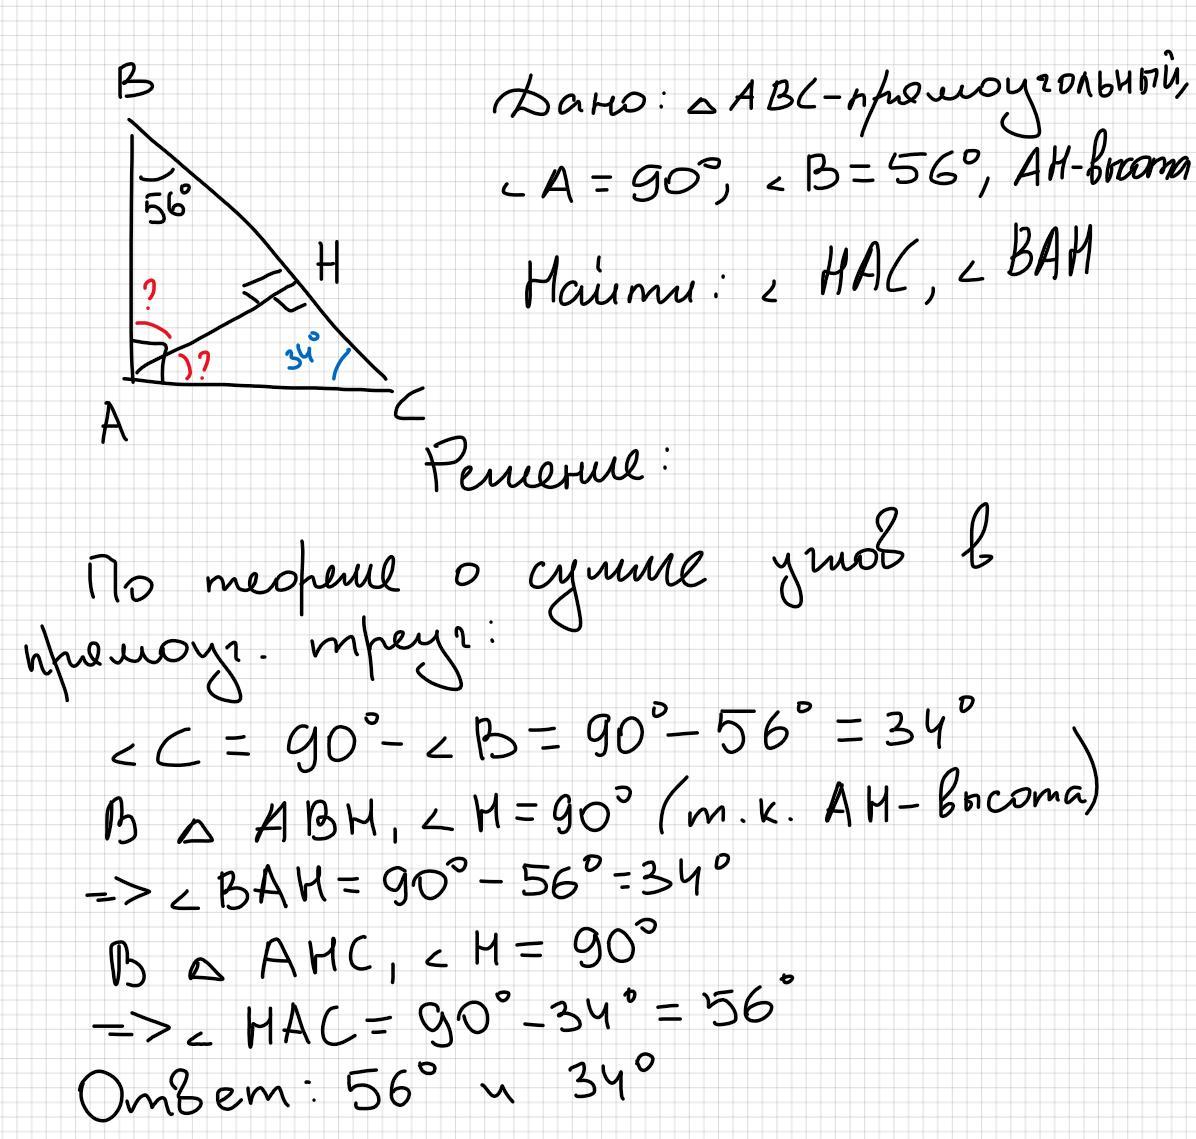 B
Дано: △ ABC-прямоугольный,
∠ A = 90°, ∠ B = 56°, AH-высота
56°
Найти: ∠ HAC, ∠ BAH
H
?
34°
?
A
C
Решение:
По теореме о сумме углов в
прямоуг. треуг:
∠ C = 90° - ∠ B = 90° - 56° = 34°
В △ ABH, ∠ H = 90° (т.к. AH - высота)
=> ∠ BAH = 90° - 56° = 34°
В △ AHC, ∠ H = 90°
=> ∠ HAC = 90° - 34° = 56°
Ответ: 56° и 34°